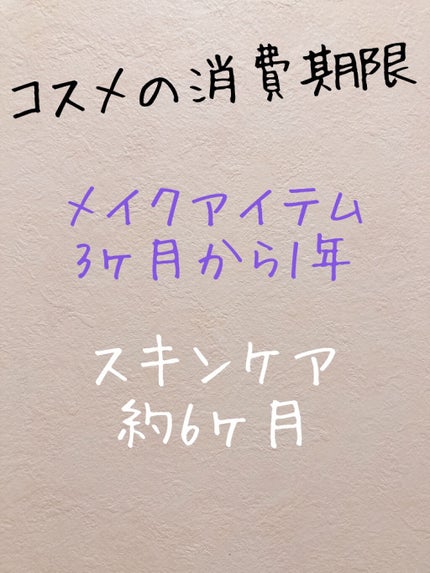 コスメの消費期限
メイクアイテム
3ヶ月から1年
スキンケア
約6ヶ月